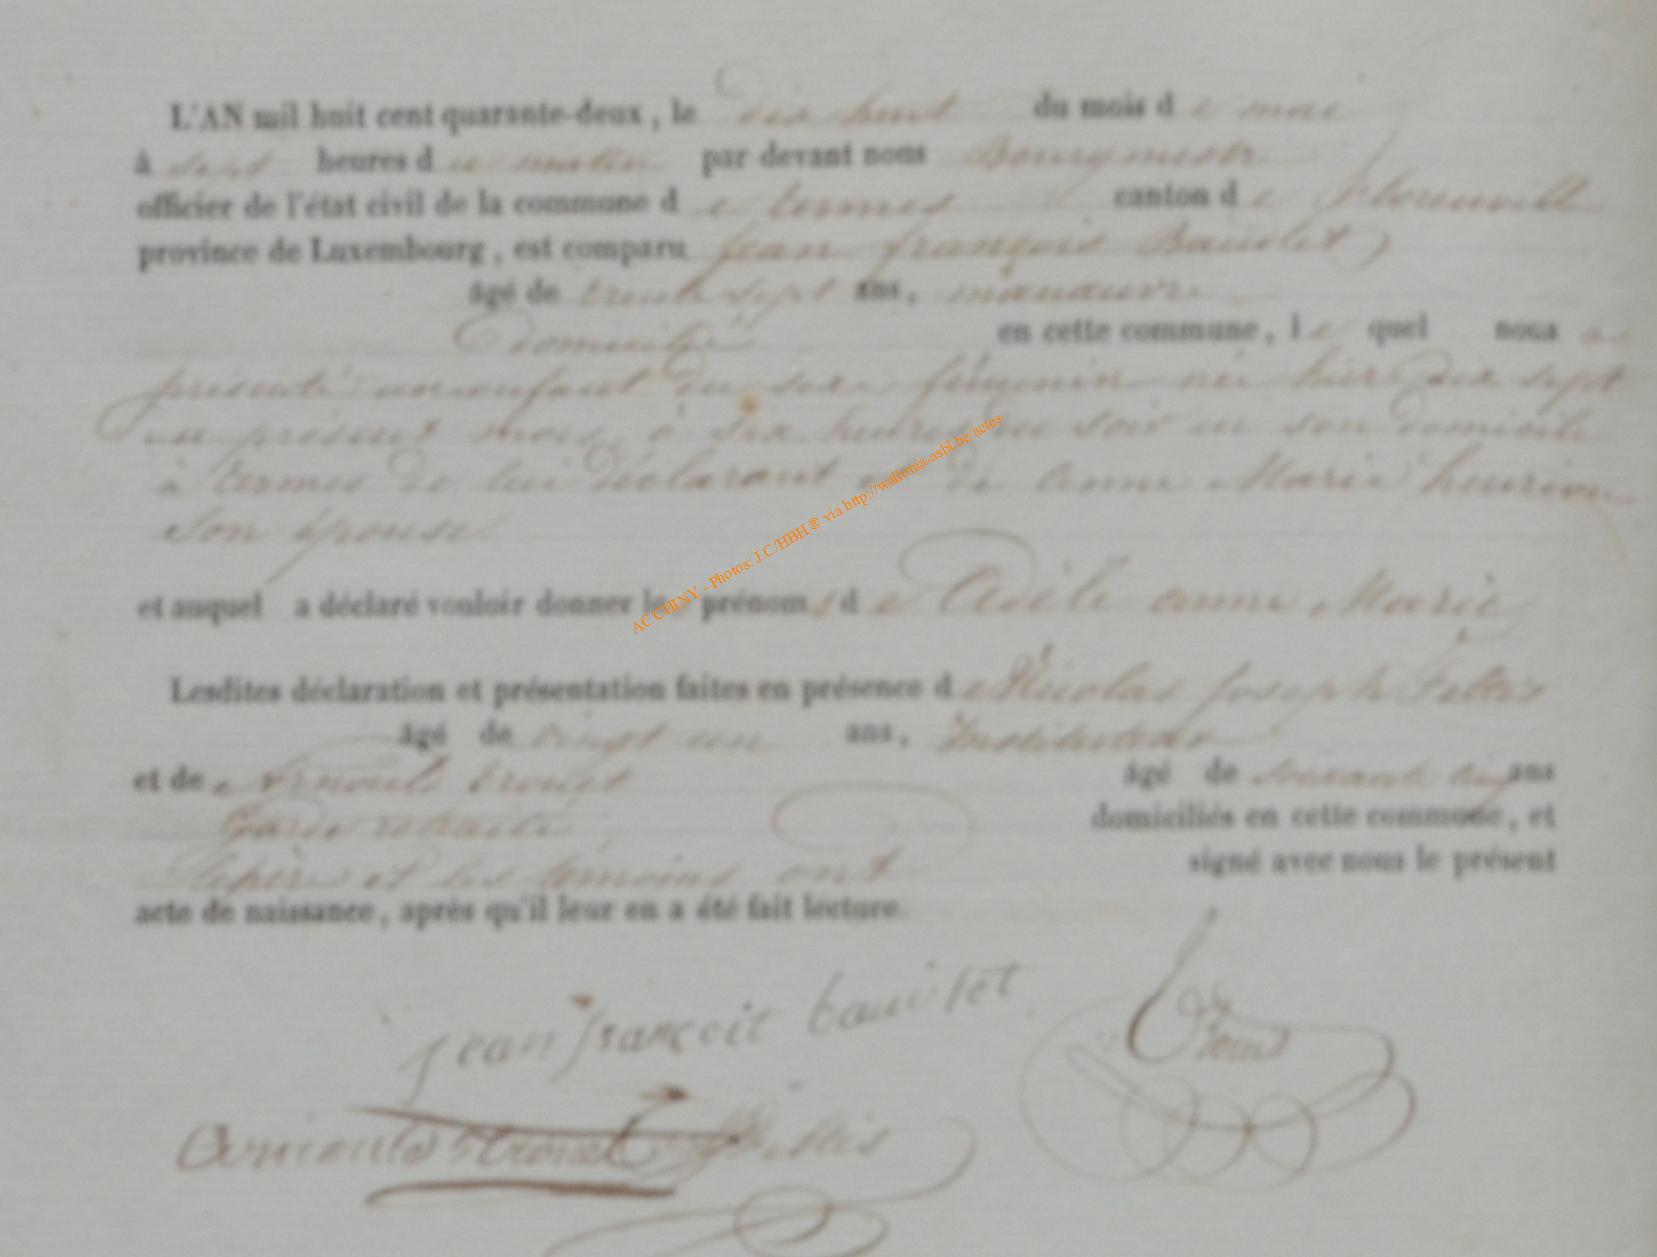 L'AN mil huit cent quarante-deux, le dix huit du mois de mai
à sept heures du matin par devant nous Bourgmestre
officier de l'état civil de la commune de termes canton de Florenville
province de Luxembourg, est comparu jean françois Bauvlet
âgé de trente sept ans, manœuvre
Domicilié en cette commune, lequel nous a
présenté un enfant du sexe féminin né hier dix sept
du présent mois, à dix heures du soir en son domicile
à termes de lui déclarant et de anne Marie henrion
son épouse
et auquel a déclaré vouloir donner les prénoms de Adèle anne Marie
Lesdites déclaration et présentation faites en présence de Nicolas joseph
âgé de vingt un ans, Instituteur
et de Arnould âgé de soixante cinq ans
Garde retraité domiciliés en cette commune, et
le père et les témoins ont signé avec nous le présent
acte de naissance, après qu'il leur en a été fait lecture.
jean françoit
AC CHINY - Photos: J.C/HBH ® via http://wallonia-asbl.be/actes